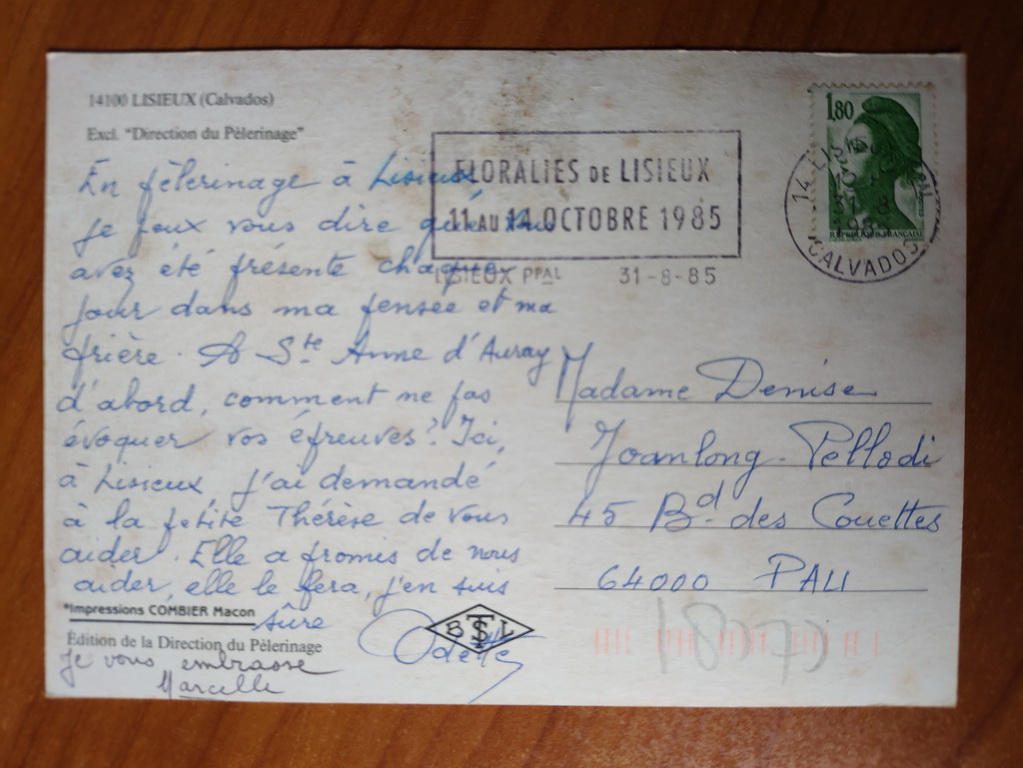 14100 LISIEUX (Calvados)
Excl. "Direction du Pèlerinage"
En pèlerinage à Lisieux
je peux vous dire que vous
avez été présente chaque
jour dans ma pensée et ma
prière. A Ste Anne d'Auray
d'abord, comment ne pas
évoquer vos épreuves? Ici,
à Lisieux, j'ai demandé
à la petite Thérèse de vous
aider. Elle a promis de nous
aider, elle le fera, j'en suis
sûre
Odette
*Impressions COMBIER Macon
Édition de la Direction du Pèlerinage
Je vous embrasse
Marcelle
BTSL
FLORALIES DE LISIEUX
11 AU 14 OCTOBRE 1985
LISIEUX PPAL 31-8-85
1,80
RÉPUBLIQUE FRANÇAISE
CALVADOS
Madame Denise
Joanlong-Pellodi
45 Bd. des Couettes
64000 PAU